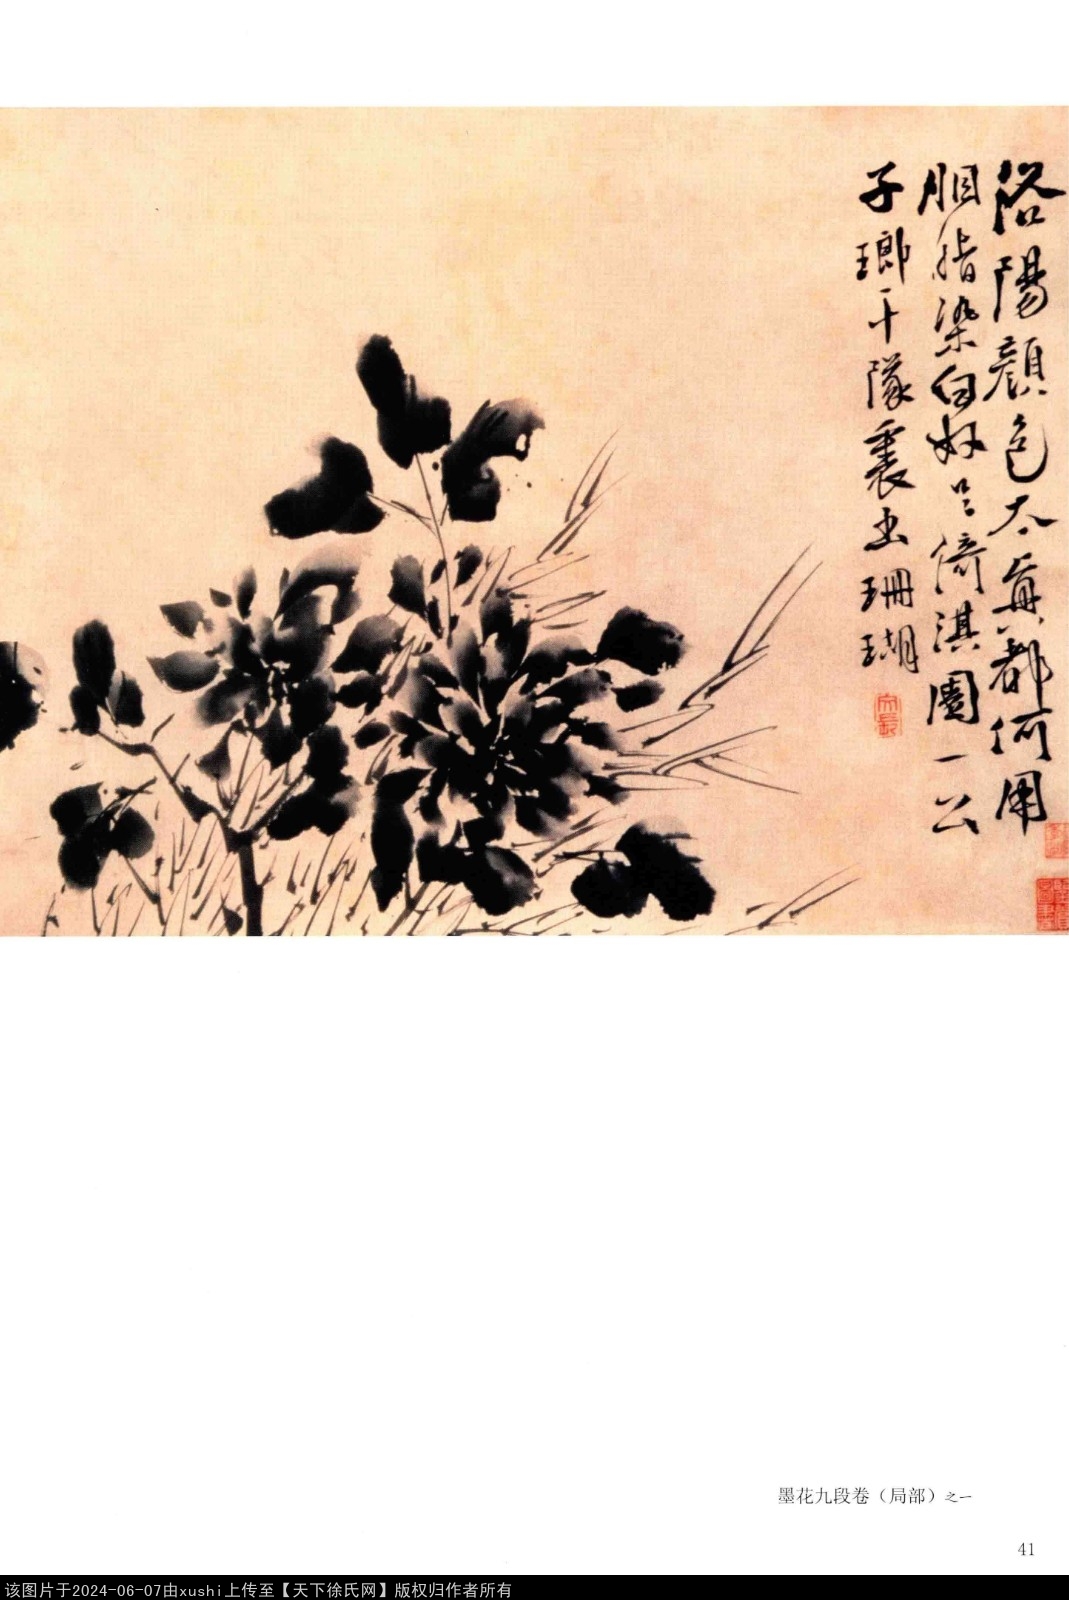 洛陽顏色太真都何用
胭脂染白奴只倚淇園一公
子瑯干隊裏出珊瑚
文長
墨花九段卷（局部）之一
41
该图片于2024-06-07由xushi上传至【天下徐氏网】版权归作者所有